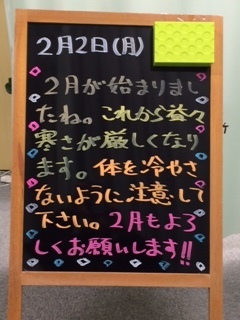 2月2日(月)
2月が始まりまし
たね。これから益々
寒さが厳しくなり
ます。体を冷やさ
ないように注意して
下さい。2月もよろ
しくお願いします!!